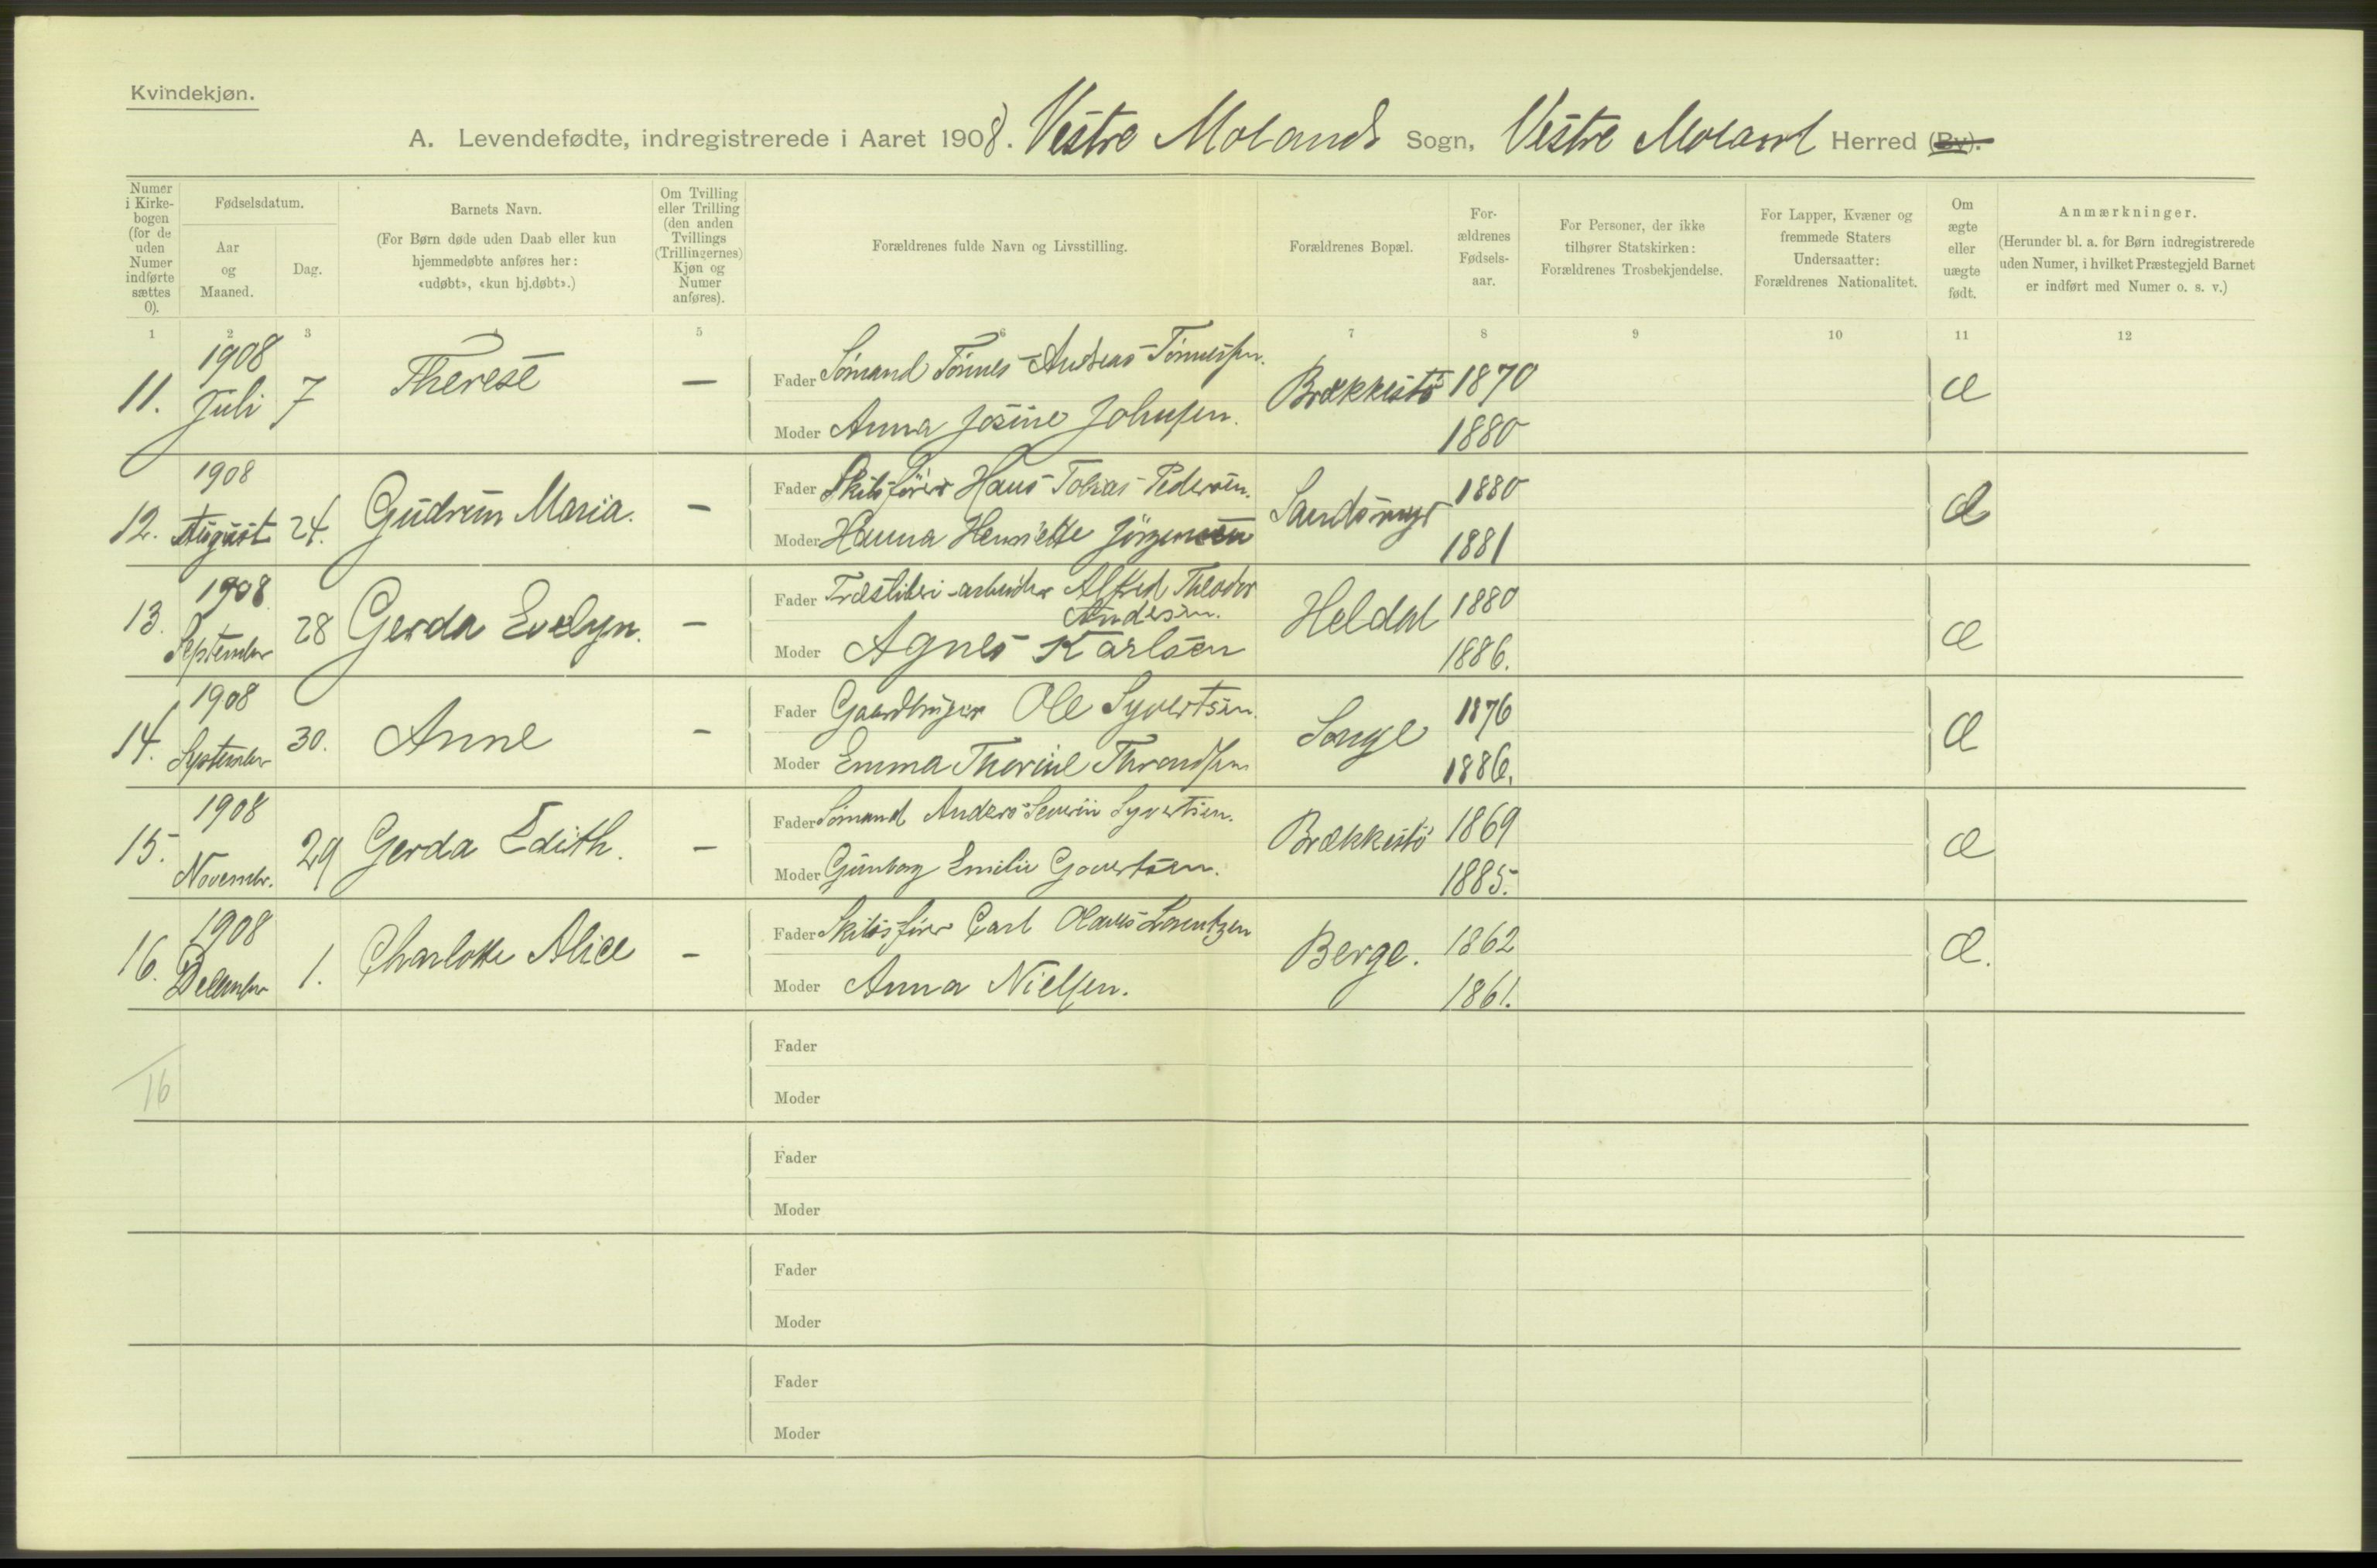 Kvindekjøn.
A. Levendefødte, indregistrerede i Aaret 1908. Vestre Molands Sogn, Vestre Moland Herred (By).
Numer i Kirkebogen (for de uden Numer indførte sættes 0).
Fødselsdatum.
Aar og Maaned.
Dag.
Barnets Navn.
(For Børn døde uden Daab eller kun hjemmedøbte anføres her: «udøbt», «kun hj.døbt».)
Om Tvilling eller Trilling (den anden Tvillings (Trillingernes) Kjøn og Numer anføres).
Forældrenes fulde Navn og Livsstilling.
Forældrenes Bopæl.
Forældrenes Fødselsaar.
For Personer, der ikke tilhører Statskirken: Forældrenes Trosbekjendelse.
For Lapper, Kvæner og fremmede Staters Undersaatter: Forældrenes Nationalitet.
Om ægte eller uægte født.
Anmærkninger.
(Herunder bl. a. for Børn indregistrerede uden Numer, i hvilket Præstegjeld Barnet er indført med Numer o. s. v.)
1 2 3 4 5 6 7 8 9 10 11 12
11. 1908 Juli 7 Therese — Fader Sømand Tønnes Andreas Tønnessen. Brækkestø 1870 æ
Moder Anna Josine Johnsen. 1880
12. 1908 August 24. Gudrun Maria. – Fader Skibsfører Hans Tobias Pedersen. Sandsmyr 1880 æ
Moder Hanna Henriette Jörgensen 1881
13. 1908 September 28 Gerda Evelyn. – Fader Træsliberi-arbeider Alfred Theodor Andersen. Heldal 1880 æ
Moder Agnes Karlsen 1886.
14. 1908 September 30. Anne – Fader Gaardbruger Ole Syvertsen. Songe 1876 æ
Moder Emma Thorine Throndsen 1886.
15. 1908 Novembr. 29 Gerda Edith. – Fader Sømand Anders Severin Syvertsen. Brækkestø 1869 æ
Moder Gunborg Emilie Govertsen. 1885.
16. 1908 December 1. Charlotte Alice – Fader Skibsfører Carl Olaus Lorentzen Berge. 1862 æ.
Moder Anna Nielsen. 1861.
Fader
16
Moder
Fader
Moder
Fader
Moder
Fader
Moder